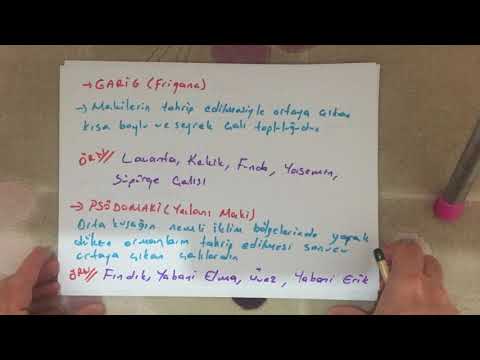 → GARİG (Frigana)
→ Makilerin tahrip edilmesiyle ortaya çıkan
kısa boylu ve seyrek çalı topluluğudur.
ÖRN// Lavanta, Kekik, Funda, Yasemin,
Süpürge Çalısı
→ PSÖDOMAKİ (Yalancı Maki)
Orta kuşağın nemli iklim bölgelerinde yaprak
döken ormanların tahrip edilmesi sonucu
ortaya çıkan çalılardır
ÖRN// Fındık, Yabani Elma, Üvez, Yabani Erik